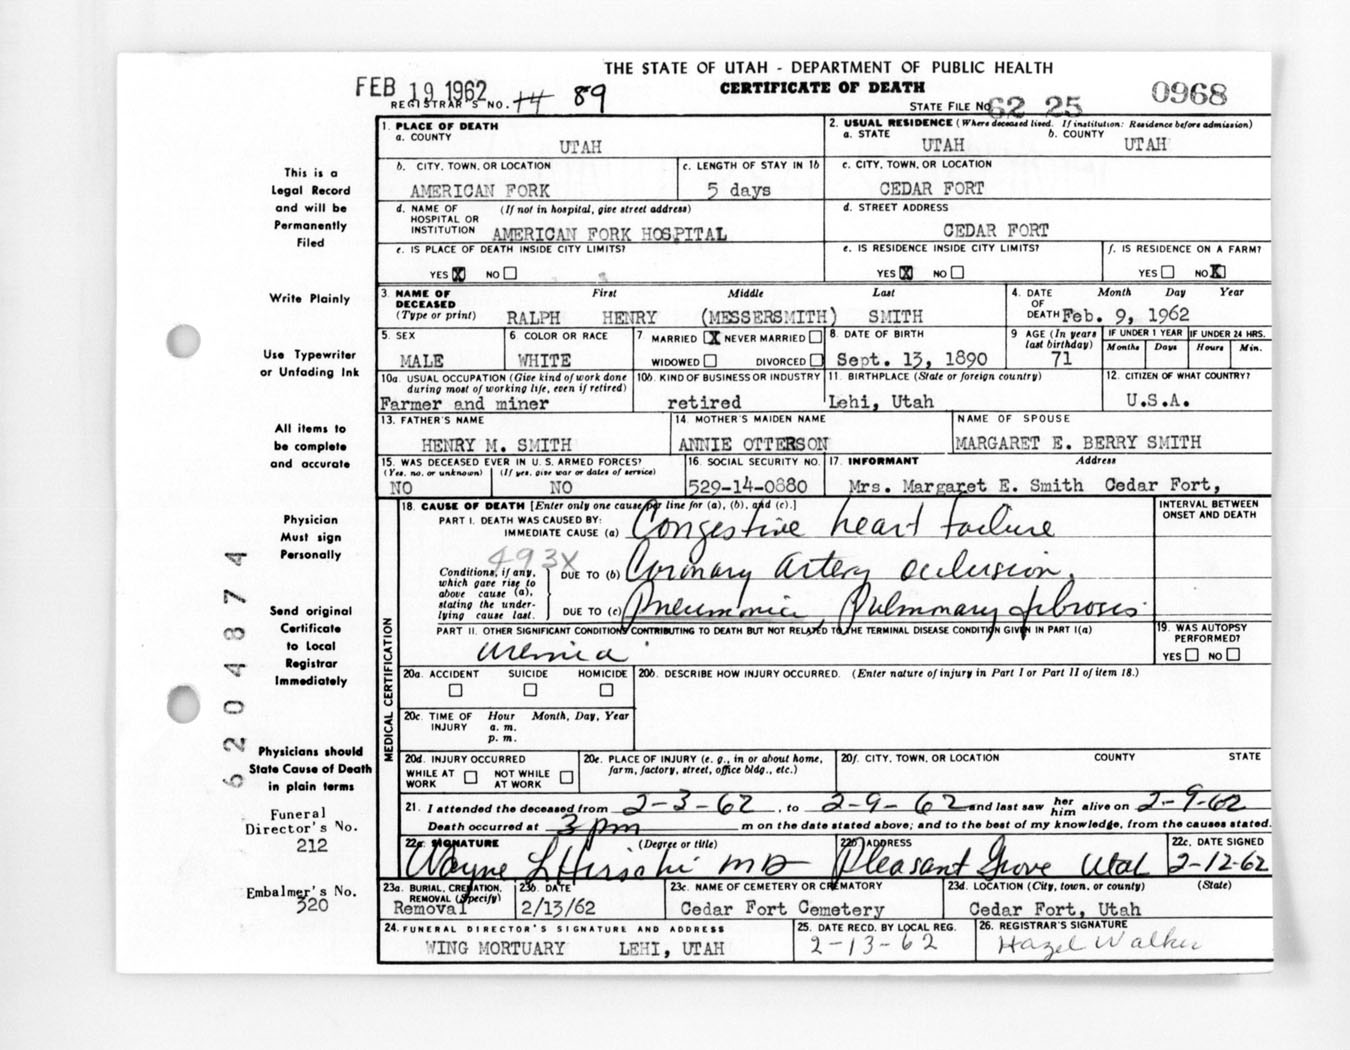 THE STATE OF UTAH - DEPARTMENT OF PUBLIC HEALTH
CERTIFICATE OF DEATH
FEB 19 1962
REGISTRAR'S NO. 14 89
STATE FILE NO. 62 25 0968
1. PLACE OF DEATH
a. COUNTY
UTAH
2. USUAL RESIDENCE (Where deceased lived. If institution: Residence before admission)
a. STATE b. COUNTY
UTAH UTAH
b. CITY, TOWN, OR LOCATION
AMERICAN FORK
c. LENGTH OF STAY IN 1b
5 days
c. CITY, TOWN, OR LOCATION
CEDAR FORT
d. NAME OF HOSPITAL OR INSTITUTION (If not in hospital, give street address)
AMERICAN FORK HOSPITAL
d. STREET ADDRESS
CEDAR FORT
e. IS PLACE OF DEATH INSIDE CITY LIMITS?
YES X NO
e. IS RESIDENCE INSIDE CITY LIMITS?
YES X NO
f. IS RESIDENCE ON A FARM?
YES NO X
3. NAME OF DECEASED (Type or print)
First Middle Last
RALPH HENRY (MESSERSMITH) SMITH
4. DATE OF DEATH
Month Day Year
Feb. 9, 1962
5. SEX
MALE
6 COLOR OR RACE
WHITE
7 MARRIED X NEVER MARRIED
WIDOWED DIVORCED
8. DATE OF BIRTH
Sept. 13, 1890
9 AGE (In years last birthday)
71
IF UNDER 1 YEAR
Months Days
IF UNDER 24 HRS.
Hours Min.
10a. USUAL OCCUPATION (Give kind of work done during most of working life, even if retired)
Farmer and miner
10b. KIND OF BUSINESS OR INDUSTRY
retired
11. BIRTHPLACE (State or foreign country)
Lehi, Utah
12. CITIZEN OF WHAT COUNTRY?
U.S.A.
13. FATHER'S NAME
HENRY M. SMITH
14. MOTHER'S MAIDEN NAME
ANNIE OTTERSON
NAME OF SPOUSE
MARGARET E. BERRY SMITH
15. WAS DECEASED EVER IN U. S. ARMED FORCES?
(Yes, no, or unknown) (If yes, give war or dates of service)
NO NO
16. SOCIAL SECURITY NO.
529-14-0880
17. INFORMANT Address
Mrs. Margaret E. Smith Cedar Fort,
MEDICAL CERTIFICATION
18. CAUSE OF DEATH [Enter only one cause per line for (a), (b), and (c).]
INTERVAL BETWEEN ONSET AND DEATH
PART I. DEATH WAS CAUSED BY:
IMMEDIATE CAUSE (a) Congestive heart failure
493X
Conditions, if any, which gave rise to above cause (a), stating the underlying cause last.
DUE TO (b) Coronary artery occlusion.
DUE TO (c) Pneumonia, Pulmonary fibrosis
PART II. OTHER SIGNIFICANT CONDITIONS CONTRIBUTING TO DEATH BUT NOT RELATED TO THE TERMINAL DISEASE CONDITION GIVEN IN PART I(a)
uremia
19. WAS AUTOPSY PERFORMED?
YES NO
20a. ACCIDENT SUICIDE HOMICIDE
20b. DESCRIBE HOW INJURY OCCURRED. (Enter nature of injury in Part I or Part II of item 18.)
20c. TIME OF INJURY Hour Month, Day, Year
a. m.
p. m.
20d. INJURY OCCURRED
WHILE AT WORK NOT WHILE AT WORK
20e. PLACE OF INJURY (e. g., in or about home, farm, factory, street, office bldg., etc.)
20f. CITY, TOWN, OR LOCATION COUNTY STATE
21. I attended the deceased from 2-3-62, to 2-9-62 and last saw her him alive on 2-9-62
Death occurred at 3 pm m on the date stated above; and to the best of my knowledge, from the causes stated.
22a. SIGNATURE (Degree or title)
Wayne L Hirschi MD
22b. ADDRESS
Pleasant Grove Utah
22c. DATE SIGNED
2-12-62
23a. BURIAL, CREMATION, REMOVAL (Specify)
Removal
23b. DATE
2/13/62
23c. NAME OF CEMETERY OR CREMATORY
Cedar Fort Cemetery
23d. LOCATION (City, town, or county) (State)
Cedar Fort, Utah
24. FUNERAL DIRECTOR'S SIGNATURE AND ADDRESS
WING MORTUARY LEHI, UTAH
25. DATE RECD. BY LOCAL REG.
2-13-62
26. REGISTRAR'S SIGNATURE
Hazel Walker
This is a
Legal Record
and will be
Permanently
Filed
Write Plainly
Use Typewriter
or Unfading Ink
All items to
be complete
and accurate
Physician
Must sign
Personally
Send original
Certificate
to Local
Registrar
Immediately
Physicians should
State Cause of Death
in plain terms
Funeral
Director's No.
212
Embalmer's No.
320
6204874